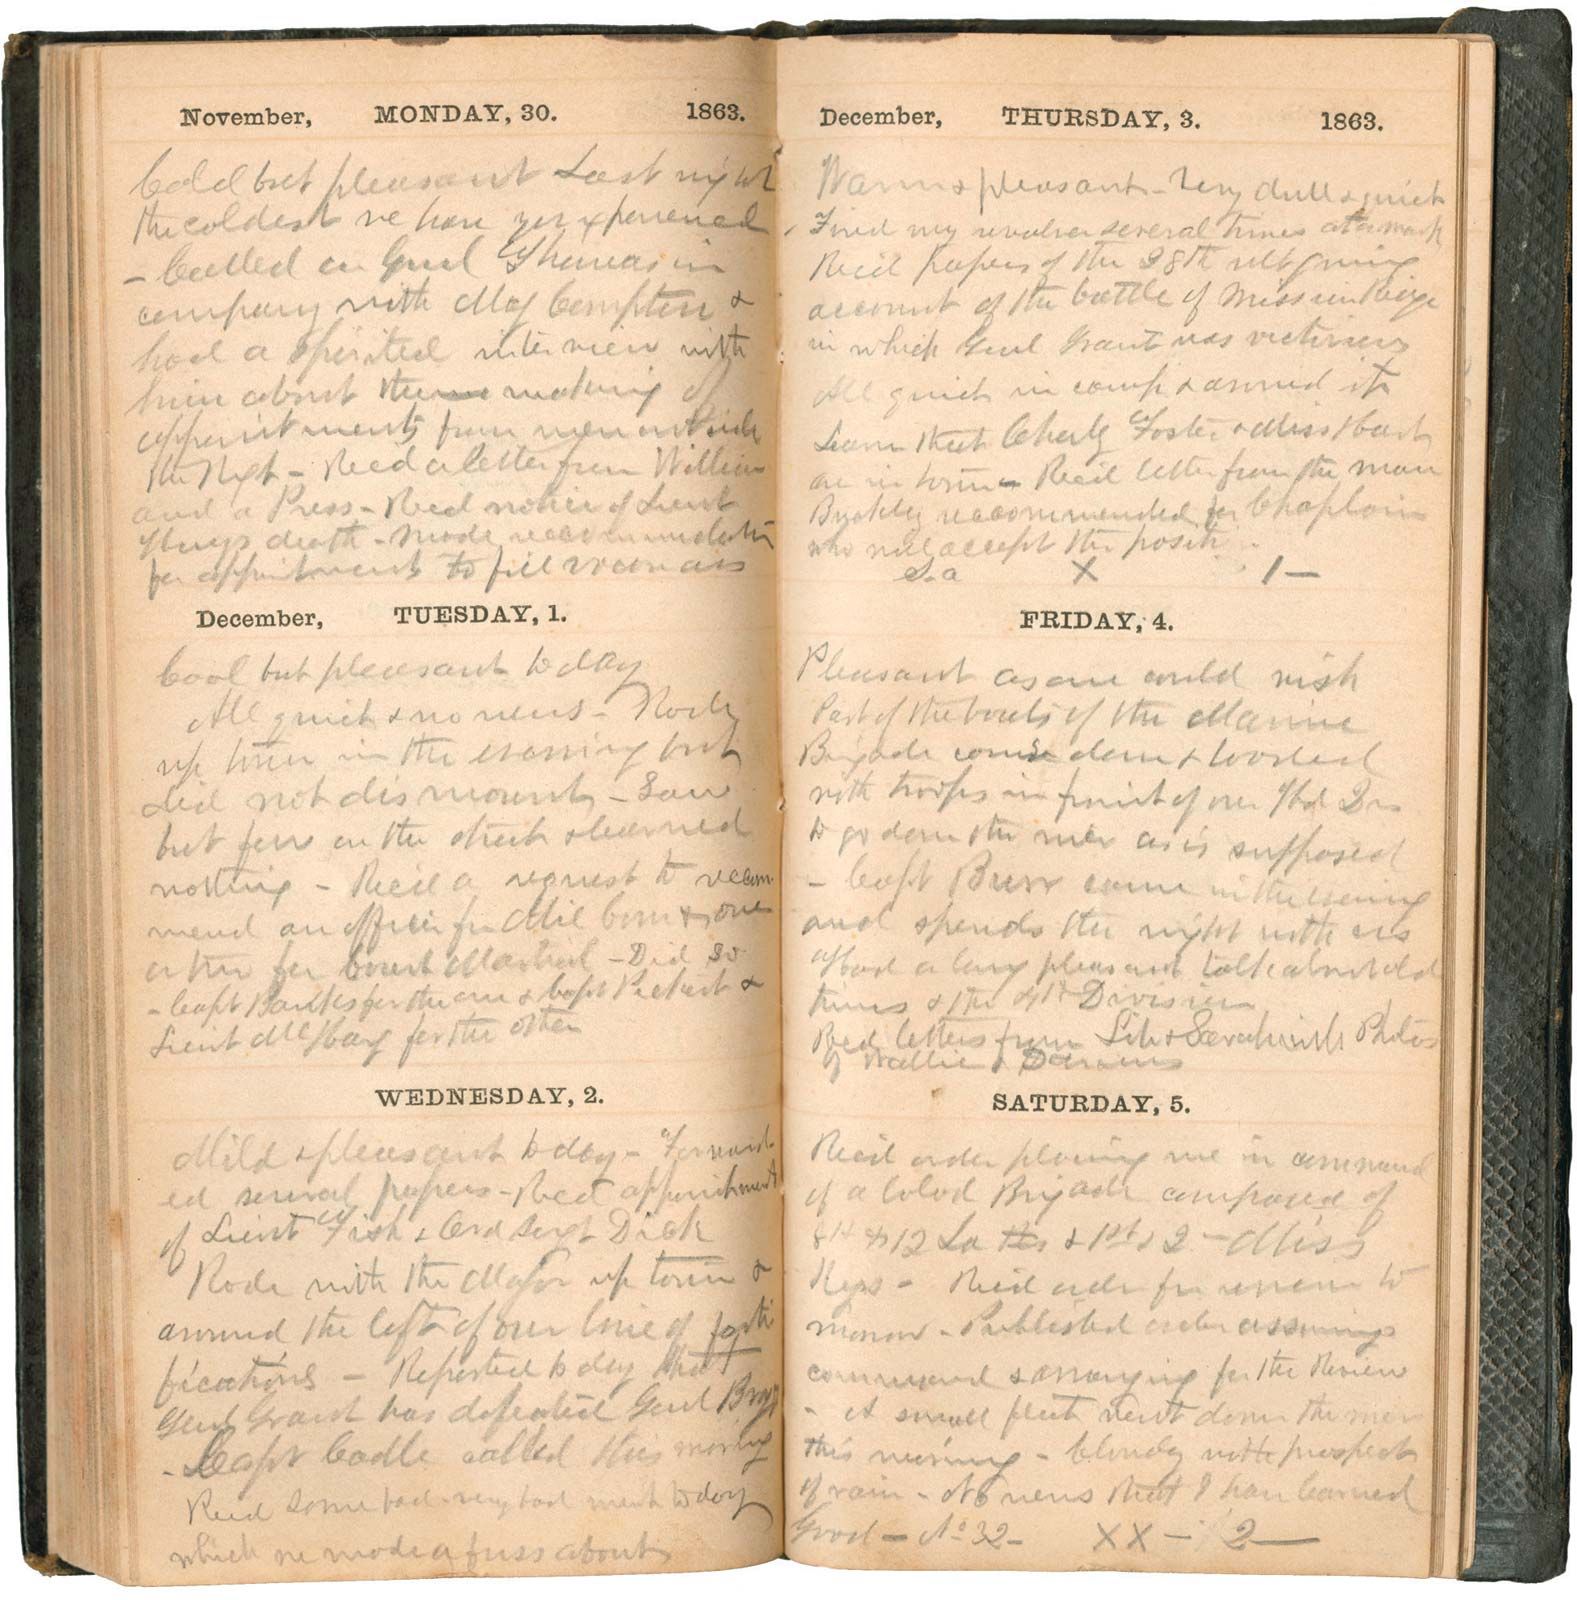 November, MONDAY, 30. 1863.
Cold but pleasant Last night
the coldest we have yet experienced
- Called on Genl Thomas in
company with Maj Compton &
had a spirited interview with
him about the making of
appointments from men outside
the Regt - Recd a letter from William
and a Press - Recd notice of Lieut
death - Made recommendation
for appointments to fill vacancies
December, TUESDAY, 1.
Cool but pleasant to day
All quiet & no news - Rode
up town in the evening but
did not dismount - Saw
but few on the street & learned
nothing - Recd a request to recom
mend an officer for Mil Com & one
other for Court Martial - Did so
- Capt Banks for the one & Capt Pickart &
Lieut for the other
WEDNESDAY, 2.
Mild & pleasant to day - Forward
ed several papers - Recd appointments
of Lieut Fish & Ord Sergt Dick
Rode with the Major up town &
around the left of our line of forti
fications - Reported to day that
Genl Grant has defeated Genl Bragg
- Capt Cadle called this morning
Recd some bad - very bad meat to day
which we made a fuss about
December, THURSDAY, 3. 1863.
Warm & pleasant - Very dull & quiet
Fired my revolver several times at a mark
Recd papers of the 28th ult giving
account of the battle of Mission Ridge
in which Genl Grant was victorious
All quiet in camp & around it
Learn that Charly Foster & Miss
are in town - Recd letter from the man
recommended for Chaplain
who will accept the positi
X 1 -
FRIDAY, 4.
Pleasant as one could wish
Part of the boats of the Marine
Brigade come down & loaded
with troops in front of our
to go down the river as is supposed
- Capt Burr came in the evening
and spends the night with us
Had a long pleasant talk about old
times & the 4th Division
Recd letters from Lib & Sarah with Photos
of Wallie &
SATURDAY, 5.
Recd order placing me in command
of a Cold Brigade composed of
8th & 12 La & 1st & 2 - Miss
Regs - Recd order for review to
morrow - Published order assuming
command & arranging for the Review
- A small fleet went down the river
this morning - Cloudy with prospect
of rain - No news that I have learned
Good - No 32 - X X - 2 -